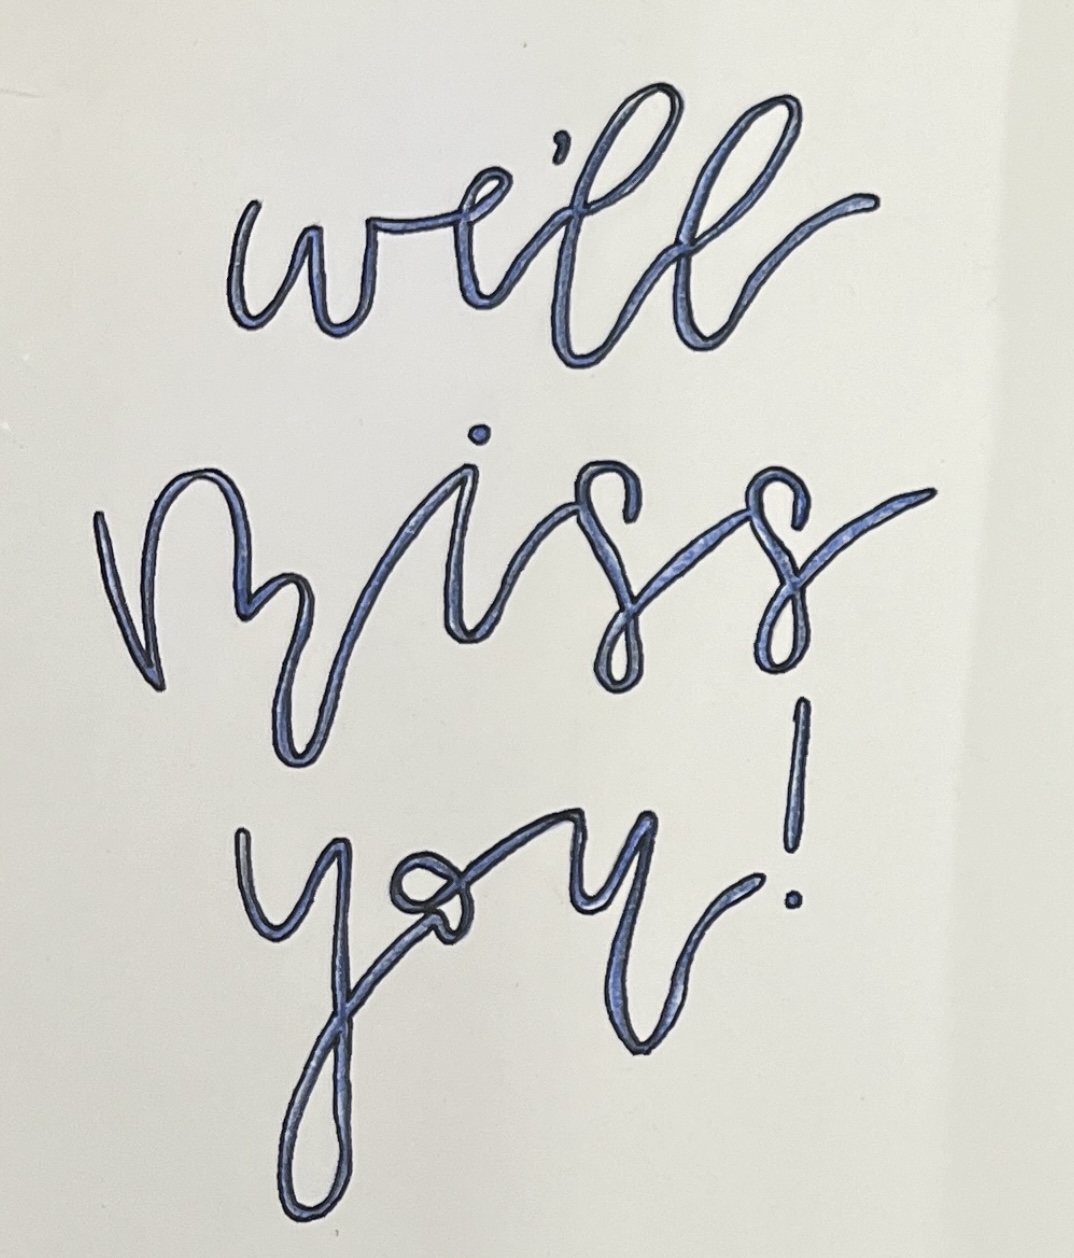 we'll
miss
you!